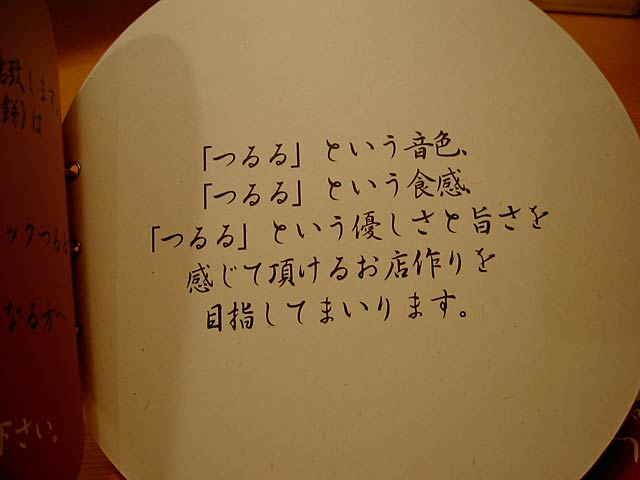 「つるる」という音色、
「つるる」という食感、
「つるる」という優しさと旨さを
感じて頂けるお店作りを
目指してまいります。
致します。
餅)は
ックつるる
なる方へ
下さい。